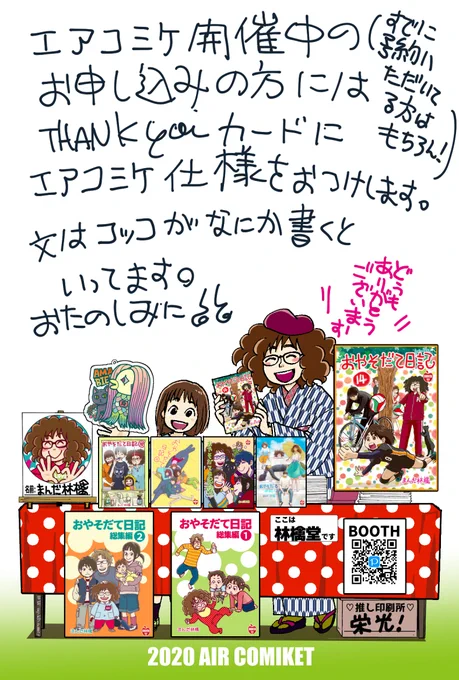 エアコミケ開催中の
お申し込みの方には
(すでに
予約い
ただいて
る方は
もちろん!)
THANK youカードに
エアコミケ仕様をおつけします。
文はコッコがなにか書くと
いってます。
おたのしみに
どうも
ありがとう
ございます
AMA
BIE
おやそだて日記
14
まんだ林檎
名前:まんだ林檎
おやそだて日記
総集編2
おやそだて日記
総集編1
まんだ林檎
ここは
林檎堂です
BOOTH
♡推し印刷所♡
栄光!
2020 AIR COMIKET